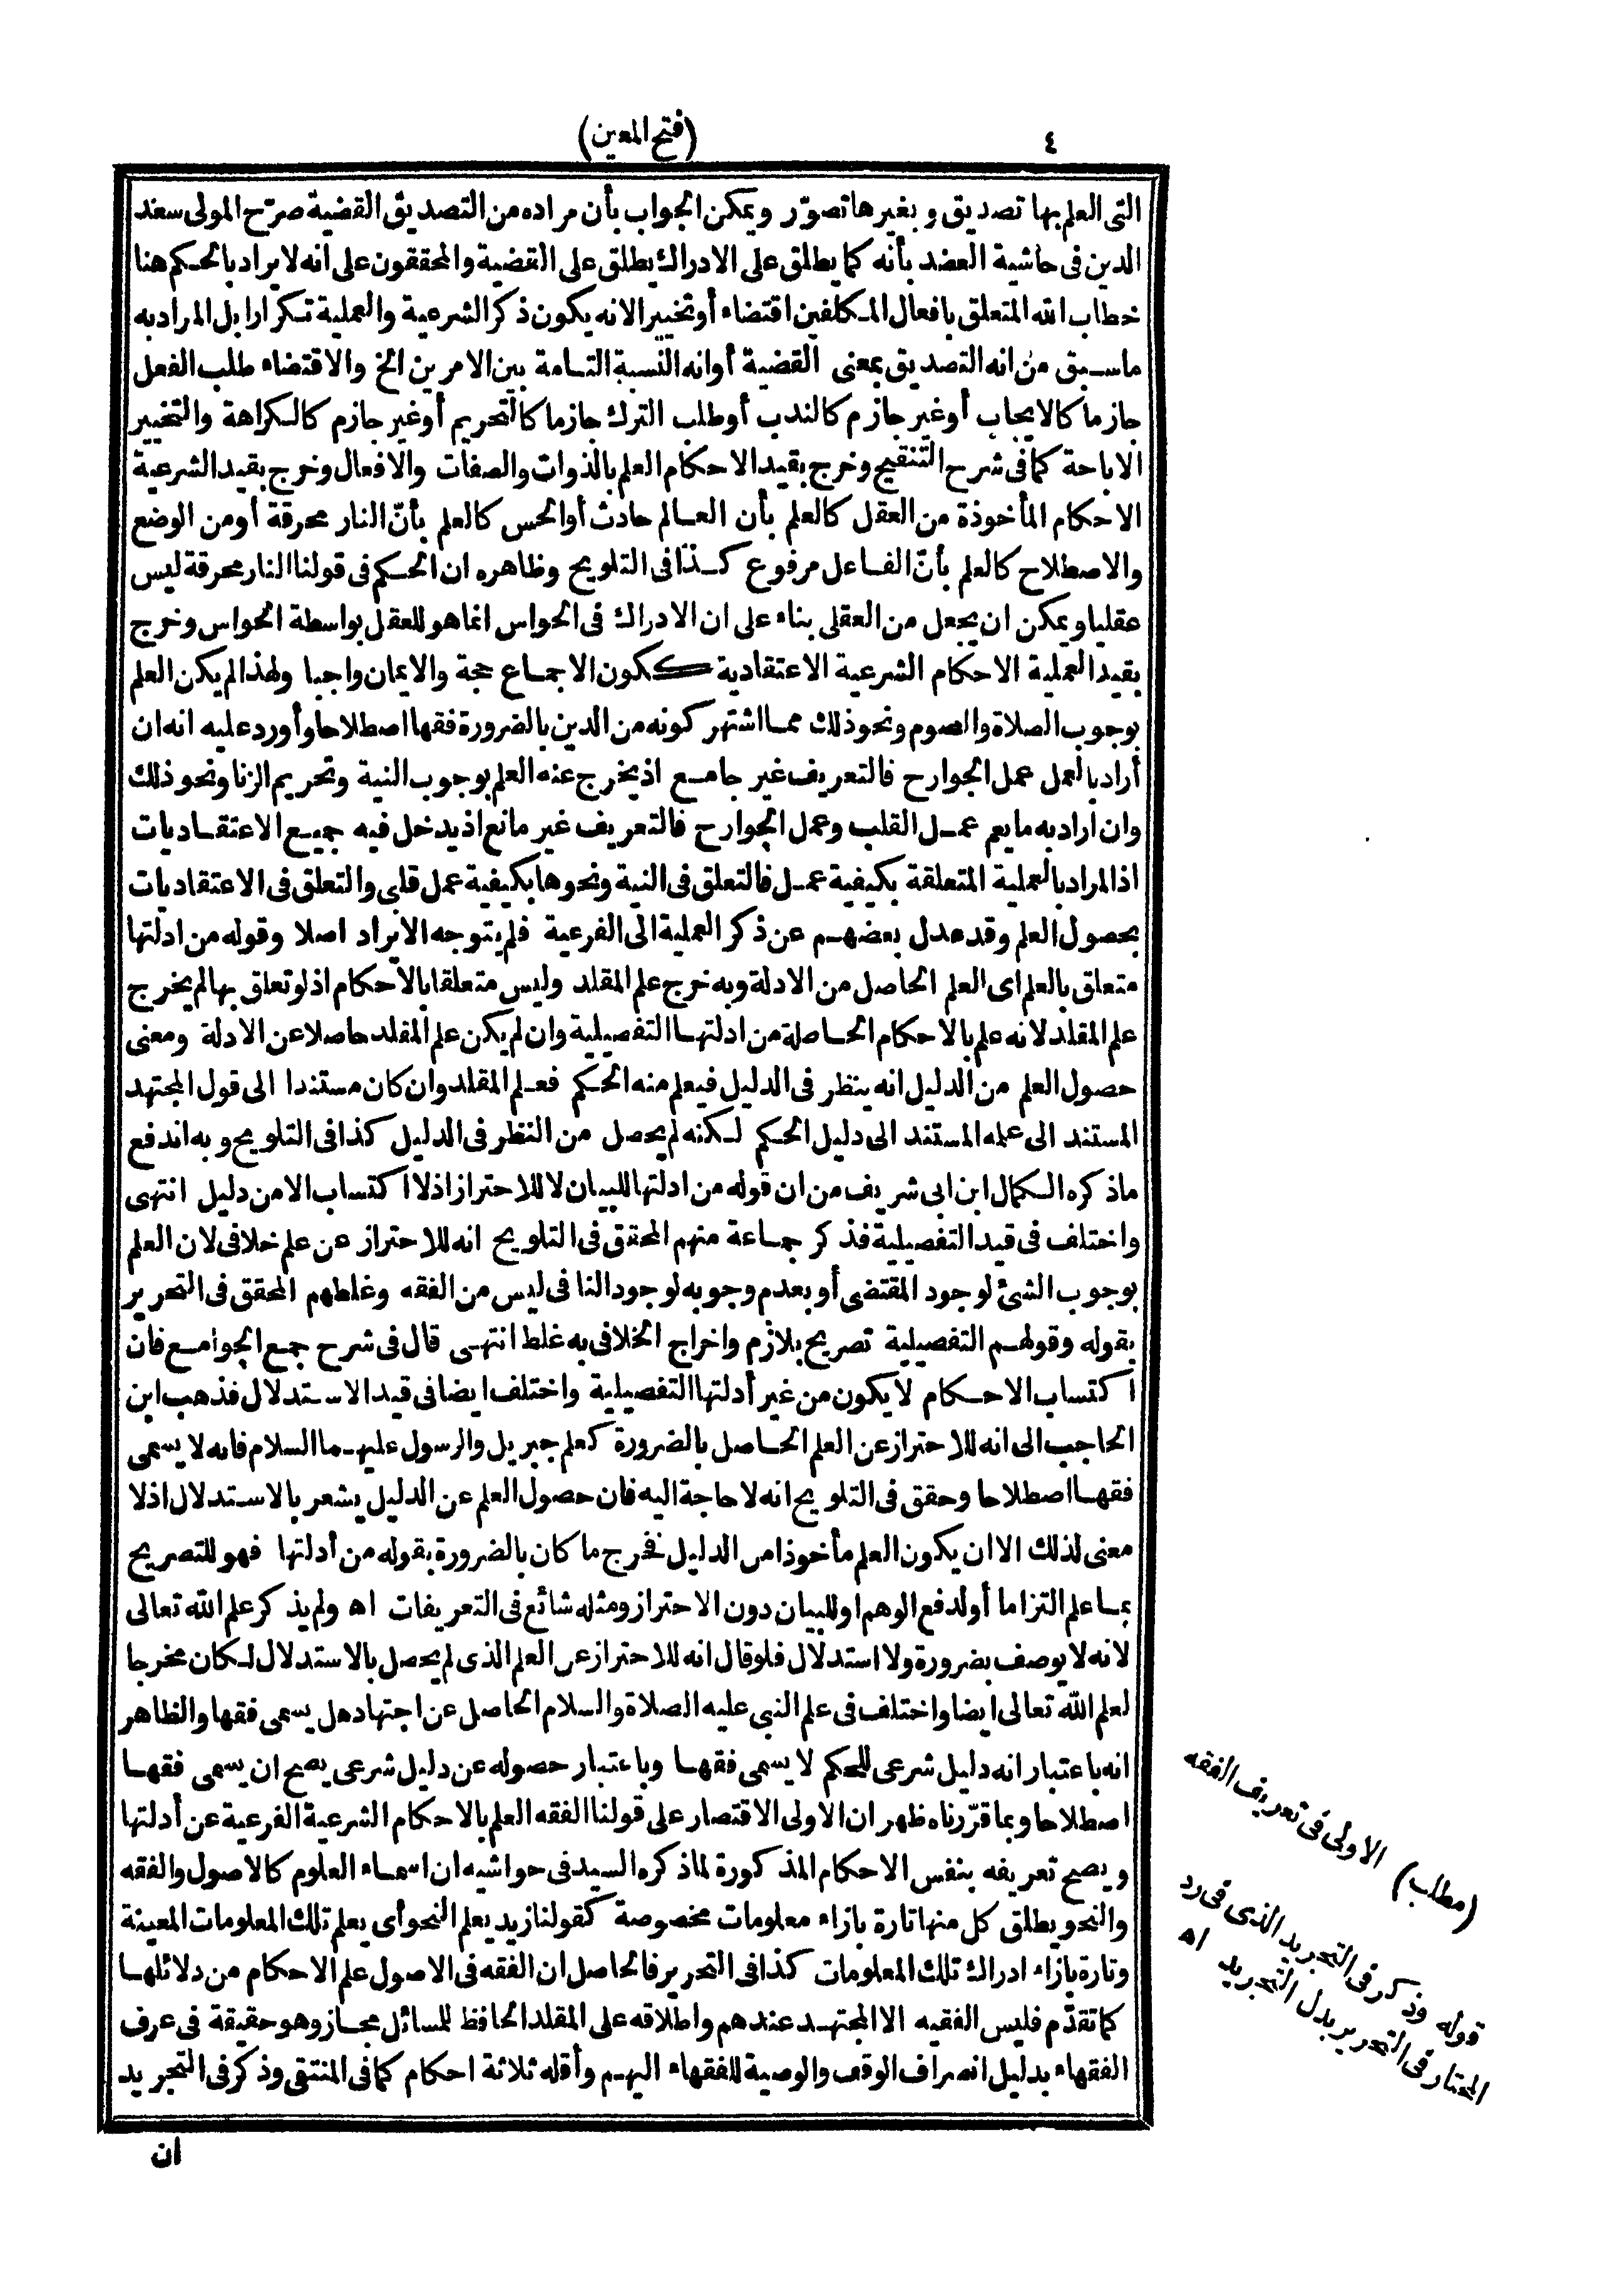 ٤
(فتح المعين)
التى العلم بها تصديق و بغيرها تصوّر ويمكن الجواب بأن مراده من التصديق القضية صرّح المولى سعد
الدين فى حاشية العضد بأنه كما يطلق على الادراك يطلق على القضية والمحققون على انه لا يراد بالحكم هنا
خطاب الله المتعلق بافعال المكلفين اقتضاء أو تخييرا لانه يكون ذكر الشرعية والعملية تكرارا بل المراد به
ما سبق من انه التصديق بمعنى القضية أوانه النسبة التامة بين الامرين الخ والاقتضاء طلب الفعل
جازما كالايجاب أوغير جازم كالندب أوطلب الترك جازما كالتحريم أوغير جازم كالكراهة والتخيير
الاباحة كما فى شرح التنقيح وخرج بقيد الاحكام العلم بالذوات والصفات والافعال وخرج بقيد الشرعية
الاحكام المأخوذة من العقل كالعلم بأن العالم حادث أوالحس كالعلم بأنّ النار محرقة أومن الوضع
والاصطلاح كالعلم بأنّ الفاعل مرفوع كذا فى التلويح وظاهره ان الحكم فى قولنا النار محرقة ليس
عقليا ويمكن ان يجعل من العقلى بناء على ان الادراك فى الحواس انما هو للعقل بواسطة الحواس وخرج
بقيد العملية الاحكام الشرعية الاعتقادية ككون الاجماع حجة والايمان واجبا ولهذا لم يكن العلم
بوجوب الصلاة والصوم ونحو ذلك مما اشتهر كونه من الدين بالضرورة فقها اصطلاحا وأورد عليه انه ان
أراد بالعمل عمل الجوارح فالتعريف غير جامع اذ يخرج عنه العلم بوجوب النية وتحريم الزنا ونحو ذلك
وان اراد به ما يعم عمل القلب وعمل الجوارح فالتعريف غير مانع اذ يدخل فيه جميع الاعتقاديات
اذ المراد بالعملية المتعلقة بكيفية عمل فالتعلق فى النية ونحوها بكيفية عمل قلبى والتعلق فى الاعتقاديات
بحصول العلم وقد عدل بعضهم عن ذكر العملية الى الفرعية فلم يتوجه الايراد اصلا وقوله من ادلتها
متعلق بالعلم اى العلم الحاصل من الادلة وبه خرج علم المقلد وليس متعلقا بالأحكام اذ لو تعلق بها لم يخرج
علم المقلد لانه علم بالاحكام الحاصلة من ادلتها التفصيلية وان لم يكن علم المقلد حاصلا عن الادلة ومعنى
حصول العلم من الدليل انه ينظر فى الدليل فيعلم منه الحكم فعلم المقلد وان كان مستندا الى قول المجتهد
المستند الى علمه المستند الى دليل الحكم لكنه لم يحصل من النظر فى الدليل كذا فى التلويح و به اندفع
ما ذكره الكمال ابن ابى شريف من ان قوله من ادلتها للبيان لا للاحتراز اذ لا اكتساب الا من دليل انتهى
واختلف فى قيد التفصيلية فذكر جماعة منهم المحقق فى التلويح انه للاحتراز عن علم خلافى لان العلم
بوجوب الشئ لوجود المقتضى أو بعدم وجوبه لوجود النافى ليس من الفقه وغلطهم المحقق فى التحرير
بقوله وقولهم التفصيلية تصريح بلازم واخراج الخلافى به غلط انتهى قال فى شرح جمع الجوامع فان
اكتساب الاحكام لا يكون من غير أدلتها التفصيلية واختلف ايضا فى قيد الاستدلال فذهب ابن
الحاجب الى انه للاحتراز عن العلم الحاصل بالضرورة كعلم جبريل والرسول عليهما السلام فانه لا يسمى
فقها اصطلاحا وحقق فى التلويح انه لا حاجة اليه فان حصول العلم عن الدليل يشعر بالاستدلال اذ لا
معنى لذلك الا ان يكون العلم مأخوذا من الدليل فخرج ما كان بالضرورة بقوله من أدلتها فهو للتصريح
بما علم التزاما أولدفع الوهم اوللبيان دون الاحتراز ومثله شائع فى التعريفات اه ولم يذكر علم الله تعالى
لانه لا يوصف بضرورة ولا استدلال فلو قال انه للاحتراز عن العلم الذى لم يحصل بالاستدلال لكان مخرجا
لعلم الله تعالى ايضا واختلف فى علم النبى عليه الصلاة والسلام الحاصل عن اجتهاد هل يسمى فقها والظاهر
انه باعتبار انه دليل شرعى للحكم لا يسمى فقها وباعتبار حصوله عن دليل شرعى يصح ان يسمى فقها
اصطلاحا وبما قرّرناه ظهر ان الاولى الاقتصار على قولنا الفقه العلم بالاحكام الشرعية الفرعية عن أدلتها
ويصح تعريفه بنفس الاحكام المذكورة لما ذكره السيد فى حواشيه ان اسماء العلوم كالاصول والفقه
والنحو يطلق كل منها تارة بازاء معلومات مخصوصة كقولنا زيد يعلم النحو أى يعلم تلك المعلومات المعينة
وتارة بازاء ادراك تلك المعلومات كذا فى التحرير فالحاصل ان الفقه فى الاصول علم الاحكام من دلائلها
كما تقدّم فليس الفقيه الا المجتهد عندهم واطلاقه على المقلد الحافظ للمسائل مجاز وهو حقيقة فى عرف
الفقهاء بدليل انصراف الوقف والوصية للفقهاء اليهم وأقله ثلاثة احكام كما فى المنتقى وذكر فى التجريد
ان
(مطلب) الاولى فى تعريف الفقه
قوله وذكر فى التجريد الذى فى رد
المحتار فى التحرير بدل التجريد اه